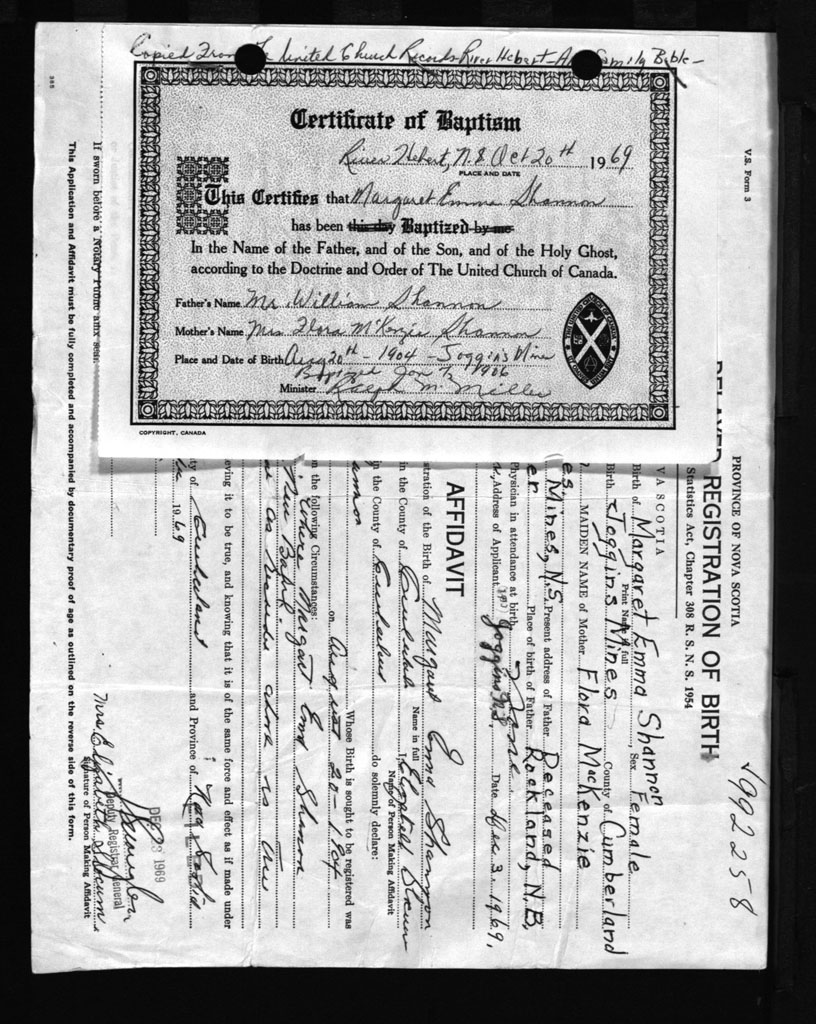 Copied From The United Church Records River Hebert And Family Bible -
Certificate of Baptism
River Hebert, N.S Oct 20th 1969
PLACE AND DATE
This Certifies that Margaret Emma Shannon
has been this day Baptized by me
In the Name of the Father, and of the Son, and of the Holy Ghost,
according to the Doctrine and Order of The United Church of Canada.
Father's Name Mr. William Shannon
Mother's Name Mrs Flora McKenzie Shannon
Place and Date of Birth Aug 20th - 1904 - Joggins Mine
Baptized Jan 7, 1906
Minister Ralph M. Miller
COPYRIGHT, CANADA
V.S. Form 3
PROVINCE OF NOVA SCOTIA
REGISTRATION OF BIRTH
Statistics Act, Chapter 308 R. S. N. S. 1954
992258
VA SCOTIA
Birth of Margaret Emma Shannon Sex Female
Print Name in full
Birth Joggins Mines County of Cumberland
MAIDEN NAME of Mother Flora MacKenzie
Mines, N.S. Present address of Father Deceased
er Place of birth of Father Rockland, N.B.
Physician in attendance at birth None
Address of Applicant Joggins N.S. Date Dec 3. 1969.
AFFIDAVIT
stration of the Birth of Margaret Emma Shannon
Name in full
in the County of Cumberland I, Elizabeth Slocum
Name of Person Making Affidavit
in the County of Cumberland do solemnly declare:
annon Whose Birth is sought to be registered was
on August 20-1904
on the following Circumstances:
Where Margaret Emma Shannon
as records above is true
eving it to be true, and knowing that it is of the same force and effect as if made under
ty of Cumberland and Province of Nova Scotia
1969
DEC 23 1969
Deputy Registrar General
Mrs Elizabeth Slocum
Signature of Person Making Affidavit
If sworn before a Notary Public affix seal.
This Application and Affidavit must be fully completed and accompanied by documentary proof of age as outlined on the reverse side of this form.